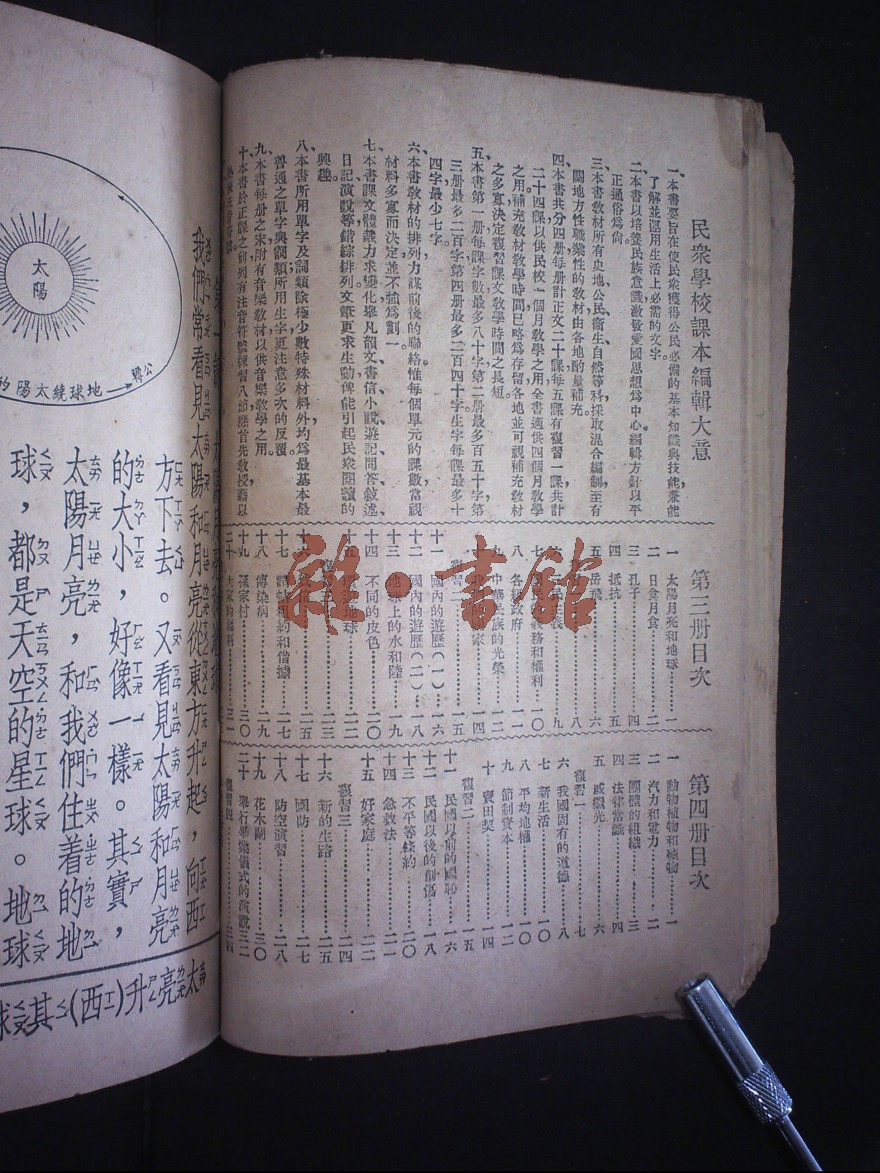 民衆學校課本編輯大意
一、本書要旨在使民衆獲得公民必備的基本知識與技能兼能
了解並運用生活上必需的文字。
二、本書以培養民族意識激發愛國思想爲中心編輯方針以平
正通俗爲尚
三、本書敎材所有史地公民衞生自然等科採取混合編制至有
關地方性職業性的敎材由各地酌量補充。
四、本書共分四册每册計正文二十課每五課有複習一課共計
二十四課以供民校一個月敎學之用全書適供四個月敎學
之用。補充敎材敎學時間已略爲存留各地並可視補充敎材
之多寡決定複習課文敎學時間之長短。
五、本書第一册每課字數最多八十字第二册最多百五十字第
三册最多二百字第四册最多二百四十字生字每課最多十
四字最少七字。
六、本書敎材的排列力謀前後的聯絡惟每個單元的課數當視
材料多寡而決定並不强爲劃一。
七、本書課文體裁力求變化舉凡韻文書信小說遊記問答敘述、
日記演說等錯綜排列文筆更求生動俾能引起民衆閱讀的
興趣。
八、本書所用單字及詞類除極少數特殊材料外均爲最基本最
普通之單字與詞類所用生字更注意多次的反覆。
九、本書每册之末附有音樂敎材以供音樂敎學之用。
十、本書於正課之前列有注音符號練習八節應首先敎授藉以
第三册目次
一 太陽月亮和地球 一
二 日食月食 二
三 孔子 四
四 抵抗 五
五 岳飛 六
九
七 義務和權利 一〇
八 各級政府
九 中華民族的光榮 一二
家 一四
複習二 一五
十一 國內的遊歷(一) 一六
十二 國內的遊歷(二) 一八
十三 地球上的水和陸 一九
十四 不同的皮色 二〇
十五 球 二三
二五
十七 契約和借據 二七
十八 傳染病 二九
十九 孫家村 三〇
二十 大家的 三一
第四册目次
一 動物植物和礦物 一
二 汽力和電力 二
三 團體的組織 三
四 法律常識 四
五 戚繼光 六
複習一 七
六 我國固有的道德 八
七 新生活 一〇
八 平均地權 一〇
九 節制資本 一二
十 賣田契 一四
複習二 一五
十一 民國以前的國恥 一六
十二 民國以後的創傷 一八
十三 不平等條約 二〇
十四 急救法
十五 好家庭
複習三 二四
十六 新的生路 二五
十七 國防 二七
十八 防空演習 二八
十九 花木蘭 三〇
二十 舉行畢業儀式的演說 三二
複習四
雜·書館
太陽
地球繞太陽的
公轉
我們常看見太陽和月亮從東方升起，向西
方下去。又看見太陽和月亮
的大小，好像一樣。其實，
太陽月亮，和我們住着的地
球，都是天空的星球。地球
太亮升(西)其球